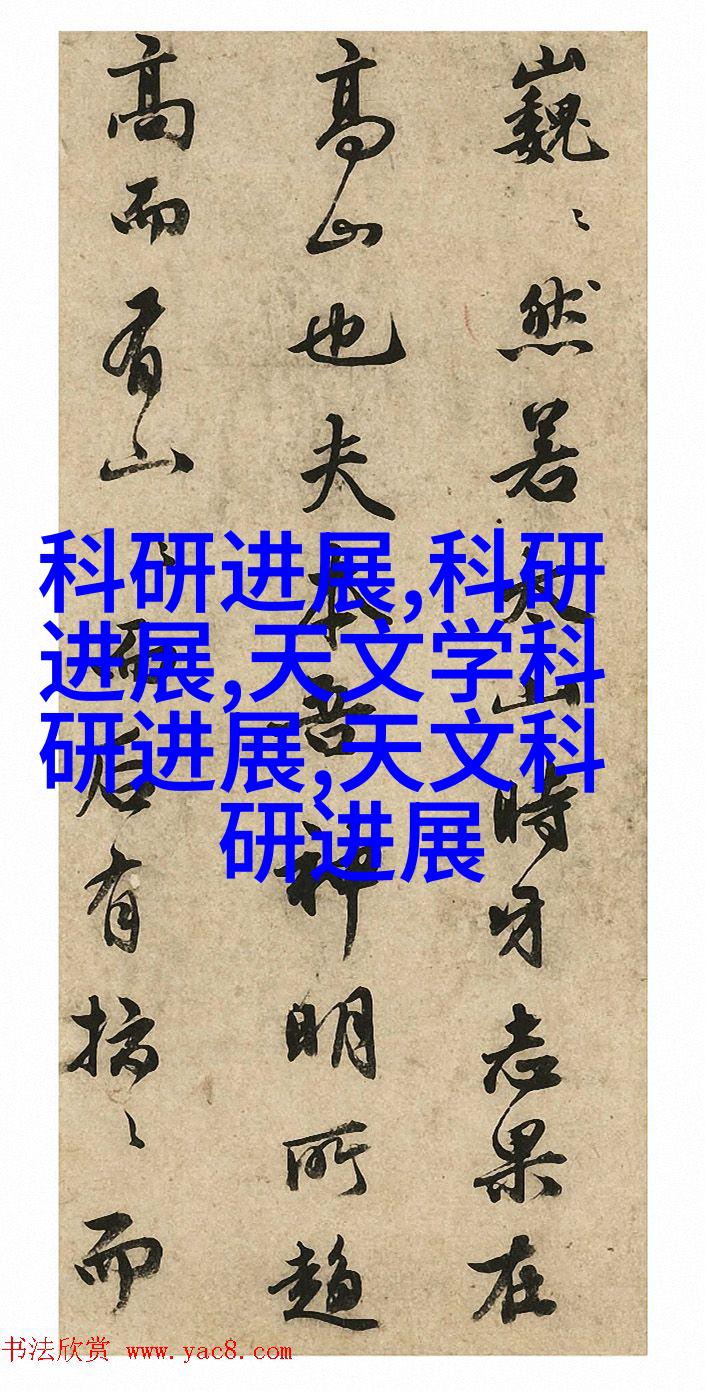 巍〻然若太山時牙志果在
高山也夫本吾神明所趨
高而有山〻而后有搞〻而
科研进展,科研
进展,天文学科
研进展,天文科
研进展
书法欣赏 www.yac8.com